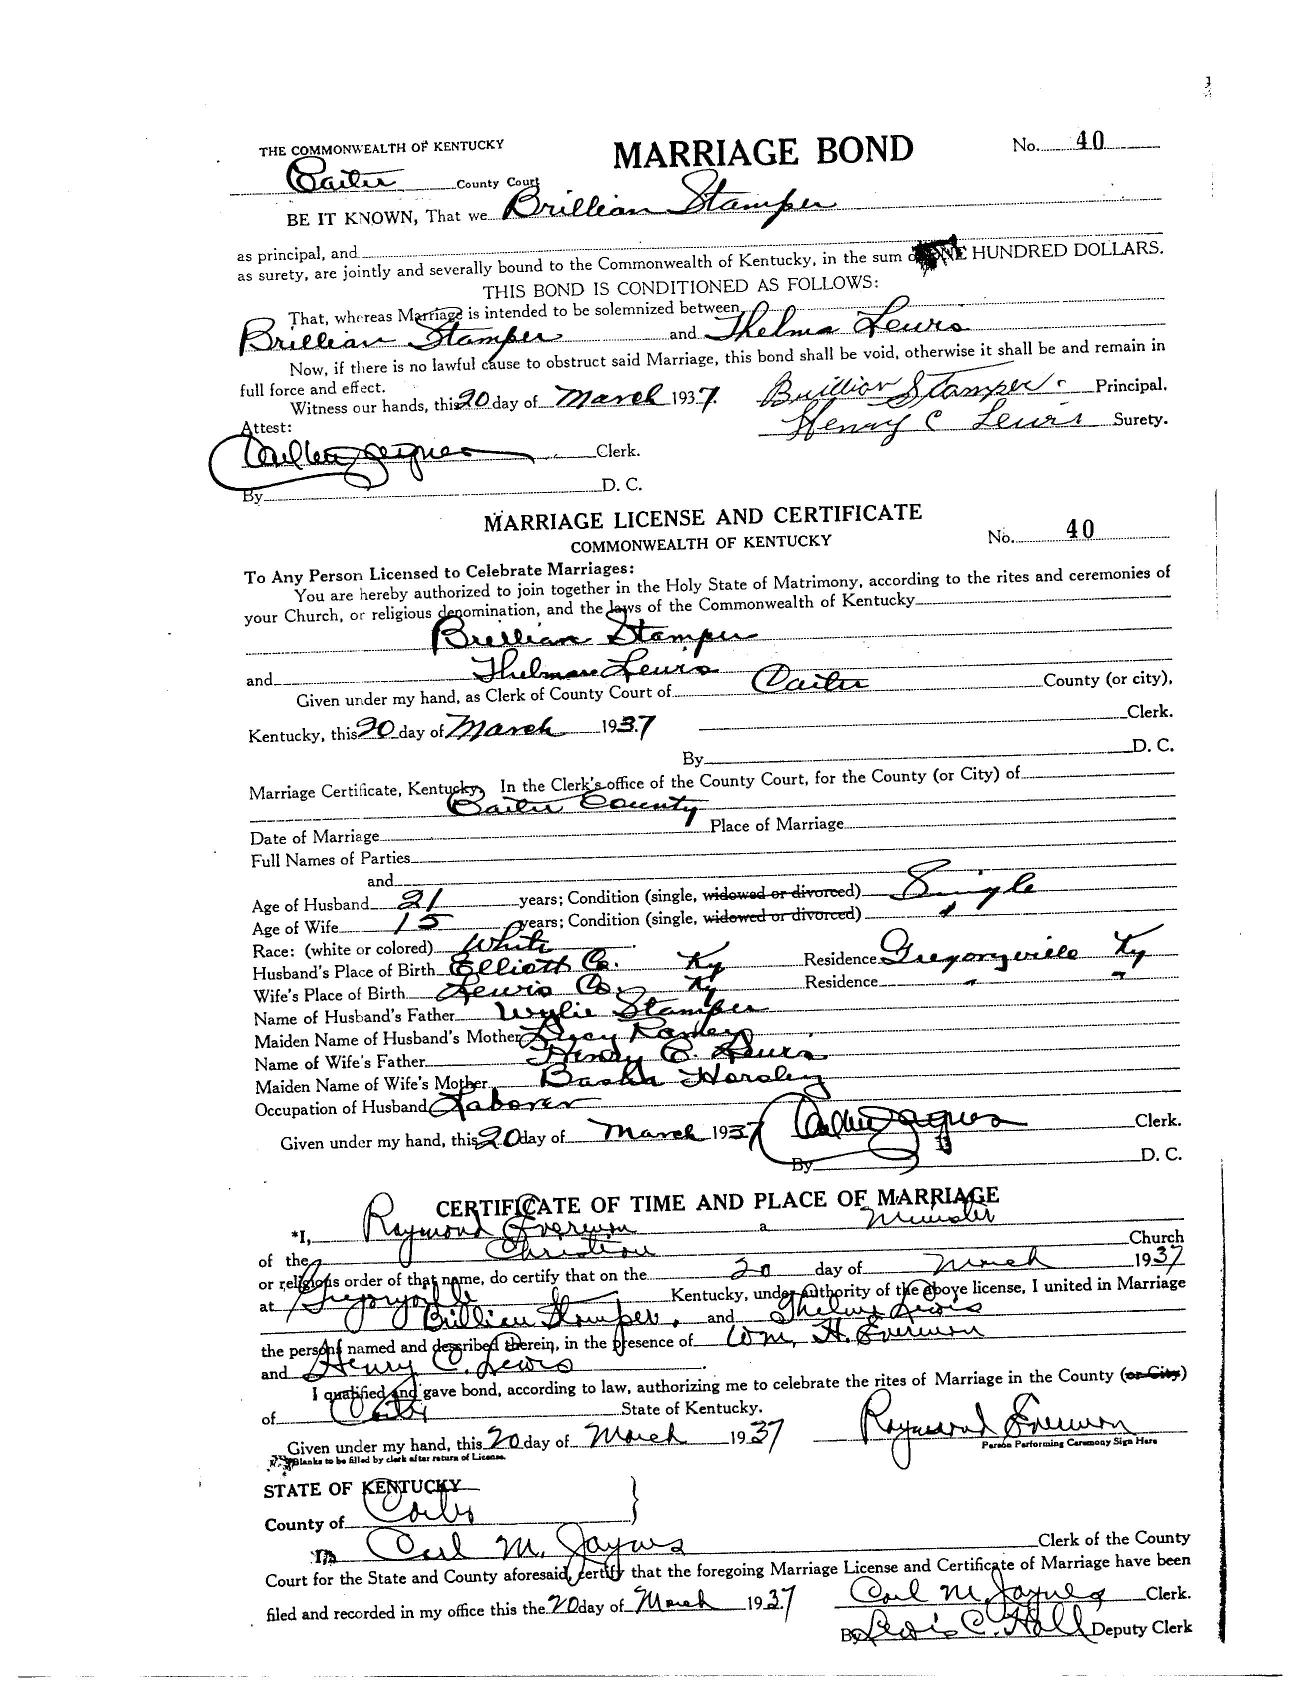 THE COMMONWEALTH OF KENTUCKY
MARRIAGE BOND
No. 40
Carter County Court
BE IT KNOWN, That we Brillian Stamper
as principal, and
as surety, are jointly and severally bound to the Commonwealth of Kentucky, in the sum of ONE HUNDRED DOLLARS.
THIS BOND IS CONDITIONED AS FOLLOWS:
That, whereas Marriage is intended to be solemnized between
Brillian Stamper and Thelma Lewis
Now, if there is no lawful cause to obstruct said Marriage, this bond shall be void, otherwise it shall be and remain in
full force and effect.
Witness our hands, this 20 day of March 1937. Brillian Stamper Principal.
Attest: Henry C Lewis Surety.
Clerk.
By D. C.
MARRIAGE LICENSE AND CERTIFICATE
COMMONWEALTH OF KENTUCKY
No. 40
To Any Person Licensed to Celebrate Marriages:
You are hereby authorized to join together in the Holy State of Matrimony, according to the rites and ceremonies of
your Church, or religious denomination, and the laws of the Commonwealth of Kentucky
Brillian Stamper
and Thelma Lewis
Given under my hand, as Clerk of County Court of Carter County (or city),
Kentucky, this 20 day of March 1937 Clerk.
By D. C.
Marriage Certificate, Kentucky, In the Clerk's office of the County Court, for the County (or City) of
Carter County
Date of Marriage Place of Marriage
Full Names of Parties
and
Age of Husband 21 years; Condition (single, widowed or divorced) Single
Age of Wife 15 years; Condition (single, widowed or divorced) "
Race: (white or colored) White
Husband's Place of Birth Elliott Co. Ky Residence Gregoryville Ky
Wife's Place of Birth Lewis Co. Ky Residence " "
Name of Husband's Father Wylie Stamper
Maiden Name of Husband's Mother
Name of Wife's Father Henry C. Lewis
Maiden Name of Wife's Mother Horsley
Occupation of Husband Laborer
Given under my hand, this 20 day of March 1937 Clerk.
By D. C.
CERTIFICATE OF TIME AND PLACE OF MARRIAGE
*I, Raymond Everman a Minister
of the Christian Church
or religious order of that name, do certify that on the 20 day of March 1937
at Gregoryville Kentucky, under authority of the above license, I united in Marriage
Brillian Stamper, and Thelma Lewis
the persons named and described therein, in the presence of Wm. H. Everman
and Henry C. Lewis
I qualified and gave bond, according to law, authorizing me to celebrate the rites of Marriage in the County (or City)
of Carter State of Kentucky.
Given under my hand, this 20 day of March 1937 Raymond Everman
Person Performing Ceremony Sign Here
Blanks to be filled by clerk after return of License.
STATE OF KENTUCKY
County of Carter
I, Carl M. Jaynes Clerk of the County
Court for the State and County aforesaid, certify that the foregoing Marriage License and Certificate of Marriage have been
filed and recorded in my office this the 20 day of March 1937 Carl M. Jaynes Clerk.
By Lewis C. Hall Deputy Clerk